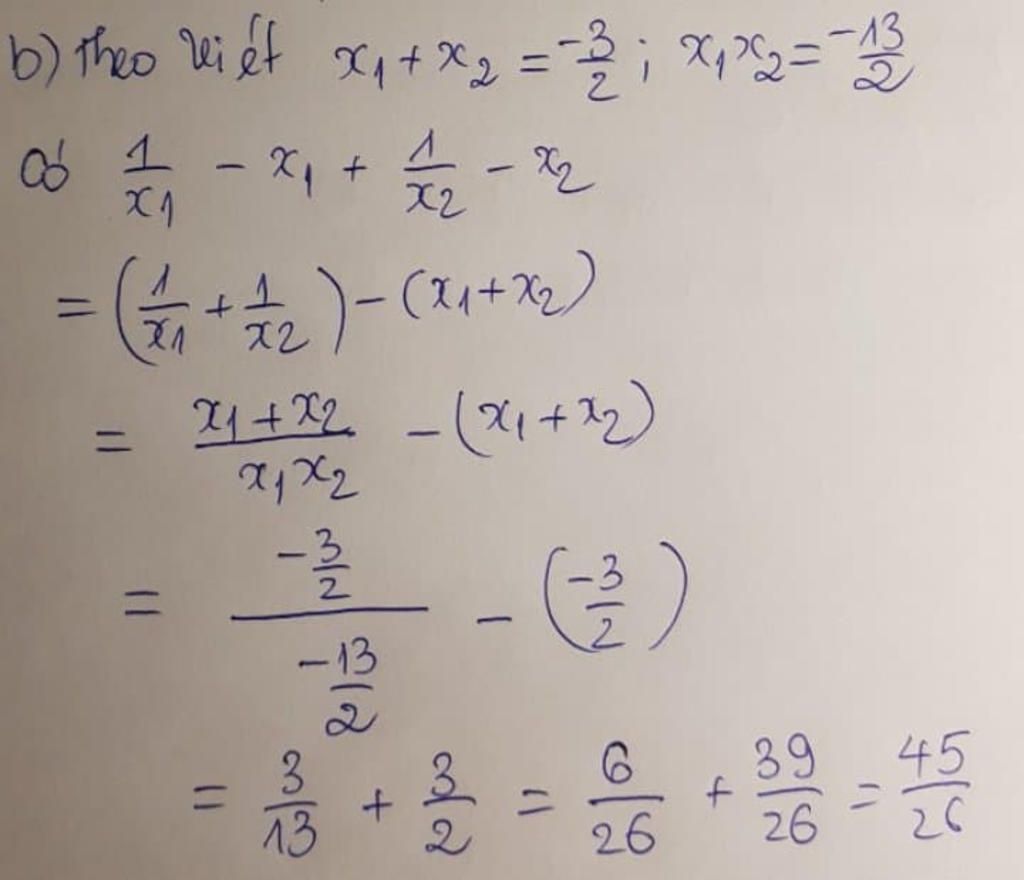 b) theo Viét x₁ + x₂ = -3/2 ; x₁x₂ = -13/2
Có 1/x₁ - x₁ + 1/x₂ - x₂
= (1/x₁ + 1/x₂) - (x₁ + x₂)
= (x₁ + x₂)/(x₁x₂) - (x₁ + x₂)
= (-3/2)/(-13/2) - (-3/2)
= 3/13 + 3/2 = 6/26 + 39/26 = 45/26